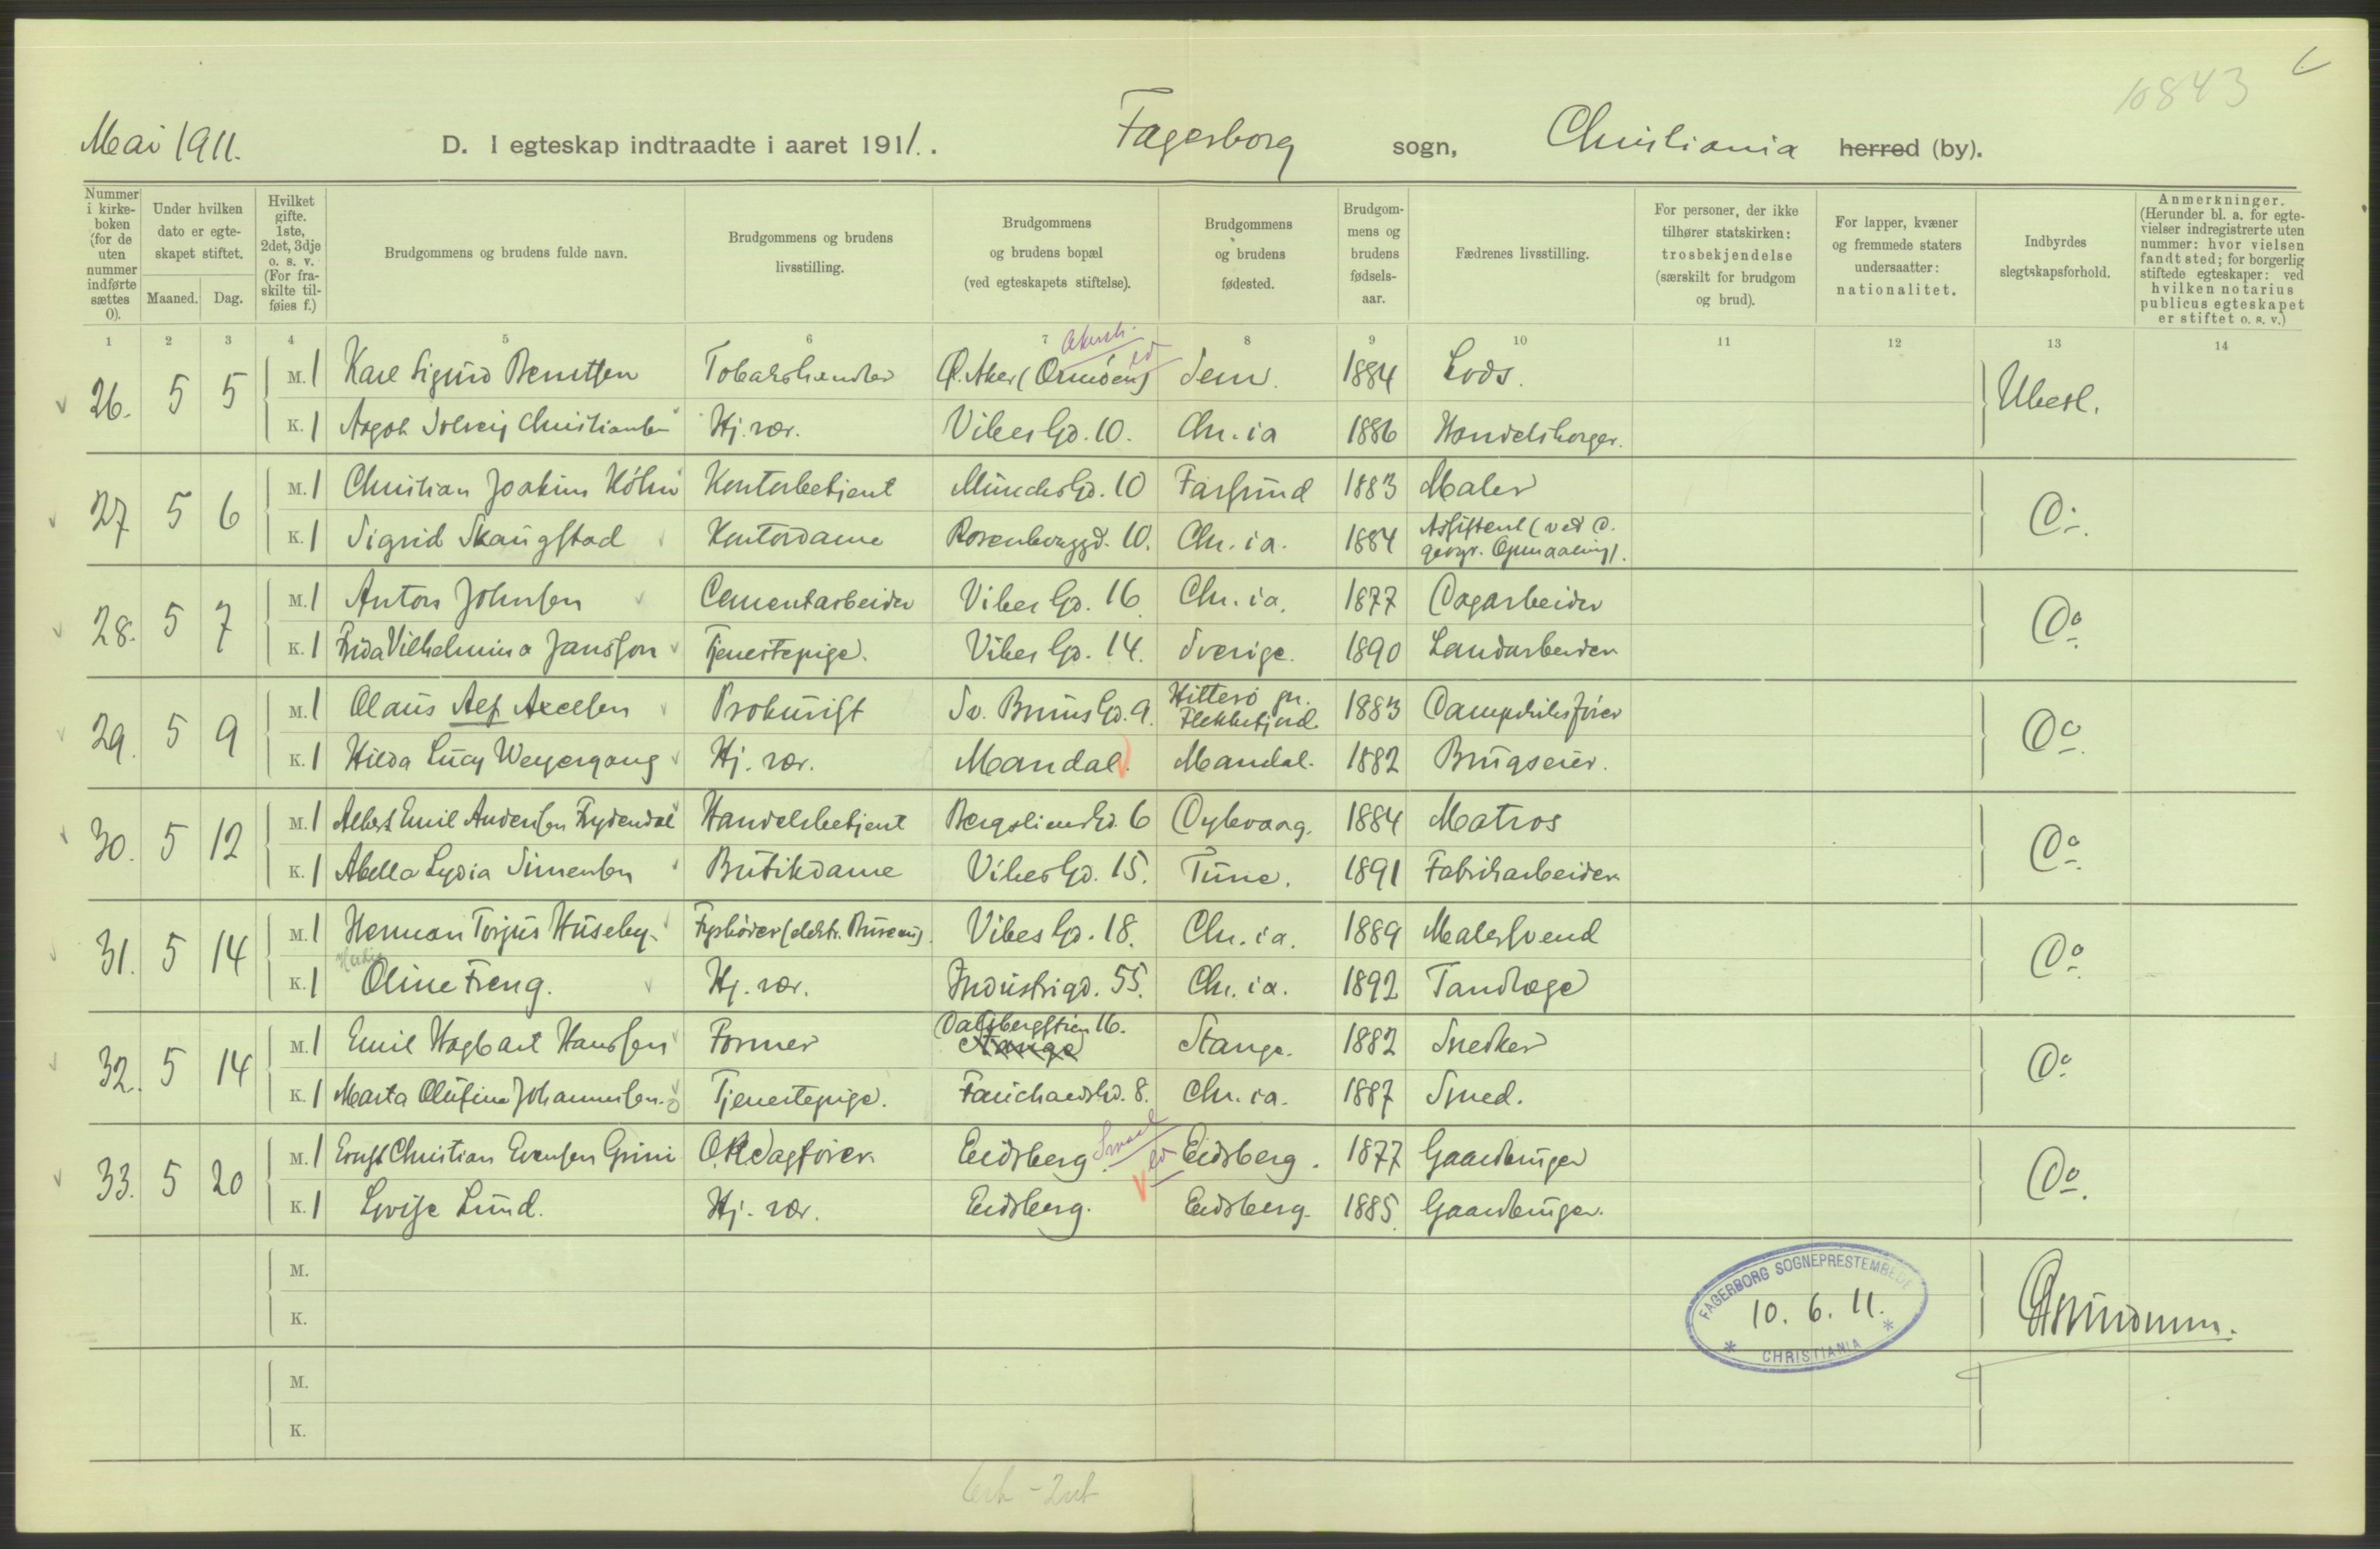 10843
Mai 1911. D. I egteskap indtraadte i aaret 1911. Fagerborg sogn, Christiania herred (by).
Nummer i kirke-boken (for de uten nummer indførte sættes 0).
Under hvilken dato er egte-skapet stiftet.
Maaned. Dag.
Hvilket gifte. 1ste, 2det, 3dje o. s. v. (For fra-skilte til-føies f.)
Brudgommens og brudens fulde navn.
Brudgommens og brudens livsstilling.
Brudgommens og brudens bopæl (ved egteskapets stiftelse).
Brudgommens og brudens fødested.
Brudgom-mens og brudens fødsels-aar.
Fædrenes livsstilling.
For personer, der ikke tilhører statskirken: trosbekjendelse (særskilt for brudgom og brud).
For lapper, kvæner og fremmede staters undersaatter: nationalitet.
Indbyrdes slegtskapsforhold.
Anmerkninger. (Herunder bl. a. for egte-vielser indregistrerte uten nummer: hvor vielsen fandt sted; for borgerlig stiftede egteskaper: ved hvilken notarius publicus egteskapet er stiftet o. s. v.)
1 2 3 4 5 6 7 8 9 10 11 12 13 14
26. 5 5 M. 1 Karl Sigurd Berntsen Tobakshandler Ø. Aker (Ormøen) Sem. 1884 Lods. Ubesl.
K. 1 Aagot Solveig Christiansen Hj. vær. Vibes Gd. 10. Chr.ia 1886 Handelsborger.
27 5 6 M. 1 Christian Joakim Høhn Kontorbetjent Munchs Gd. 10 Farsund 1883 Maler Do.
K. 1 Sigrid Skaugstad Kontordame Rosenborggd. 10. Chr.ia. 1884 Assistent (ved d. geogr. Opmaaling).
28. 5 7 M. 1 Anton Johnsen Cementarbeider Vibes Gd. 16 Chr.ia. 1877 Dagarbeider Do
K. 1 Frida Vilhelmina Jansson Tjenestepige. Vibes Gd. 14. Sverige. 1890 Landarbeider
29. 5 9 M. 1 Olaus Alf Axelsen Prokurist Sv. Bruns Gd. 9. Hitterø pr. Flekkefjord 1883 Dampskibsfører Do.
K. 1 Hilda Lucy Weyergang Hj. vær. Mandal. Mandal. 1882 Brugseier.
30. 5 12 M. 1 Albert Emil Andersen Frydendal Handelsbetjent Bergsliens Gd. 6 Dybvaag. 1884 Matros Do
K. 1 Abella Lydia Simensen Butikdame Vibes Gd. 15. Tune. 1891 Fabrikarbeider
31. 5 14 M. 1 Herman Torjus Huseby. Fyrbøder (elektr. Bureau). Vibes Gd. 18. Chr.ia. 1889 Malersvend Do
K. 1 Oline Freng. Hj. vær. Industrigd. 55. Chr.ia. 1892 Tandlæge
32. 5 14 M. 1 Emil Hagbart Hanssen Former Dalsbergstien 16. Stange Stange. 1882 Snedker Do
K. 1 Marta Olufine Johannessen. Tjenestepige. Fauchalds Gd. 8. Chr.ia. 1887 Smed.
33. 5 20 M. 1 Ernst Christian Evensen Grini O.R.Sagfører Eidsberg. Eidsberg. 1877 Gaardbruger Do.
K. 1 Lovise Lund. Hj. vær. Eidsberg. Eidsberg. 1885. Gaardbruger.
M.
K.
FAGERBORG SOGNEPRESTEMBEDE
10. 6. 11.
* CHRISTIANIA *
M.
K.